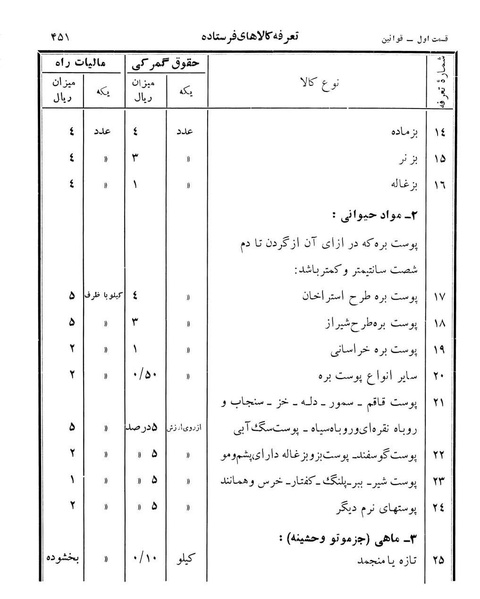 قسمت اول ــ قوانین تعرفه کالاهای فرستاده ۴۵۱
شمارهٔ تعرفه نوع کالا حقوق گمرکی مالیات راه
یکه میزان ریال یکه میزان ریال
۱۴ بز ماده عدد ۴ عدد ۴
۱۵ بز نر » ۳ » ۴
۱۶ بزغاله » ۱ » ۴
۲ــ مواد حیوانی :
پوست بره که در ازای آن از گردن تا دم
شصت سانتیمتر و کمتر باشد:
۱۷ پوست بره طرح استراخان » ۴ کیلو با ظرف ۵
۱۸ پوست بره طرح شیراز » ۳ » ۵
۱۹ پوست بره خراسانی » ۱ » ۲
۲۰ سایر انواع پوست بره » ۰/۵۰ » ۲
۲۱ پوست قاقم ــ سمور ــ دله ــ خز ــ سنجاب و
روباه نقره‌ای و روباه سیاه ــ پوست سگ آبی از روی ارزش ۵ درصد » ۵
۲۲ پوست گوسفند ــ پوست بز و بزغاله دارای پشم و مو » ۵ » » ۲
۲۳ پوست شیر ــ ببر ــ پلنگ ــ کفتار ــ خرس و همانند » ۵ » » ۱
۲۴ پوستهای نرم دیگر » ۵ » » ۲
۳ــ ماهی (جز موتو و حشینه) :
۲۵ تازه یا منجمد کیلو ۰/۱۰ » بخشوده